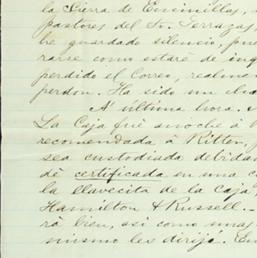 la Sierra de Encinillas,
pastores del Sr. Terrazas,
he guardado silencio, pues
rarse como estaré de inq
perdido el Correo, realmen
perdon. Ha sido un
A última hora.
La Caja fué anoche á
recomendada á Ritten,
sea custodiada debida
dé certificada en una c
la llavecita de la Caja,
Hamilton & Russell.
rá bien, así como unas
mismo les dirijí. En